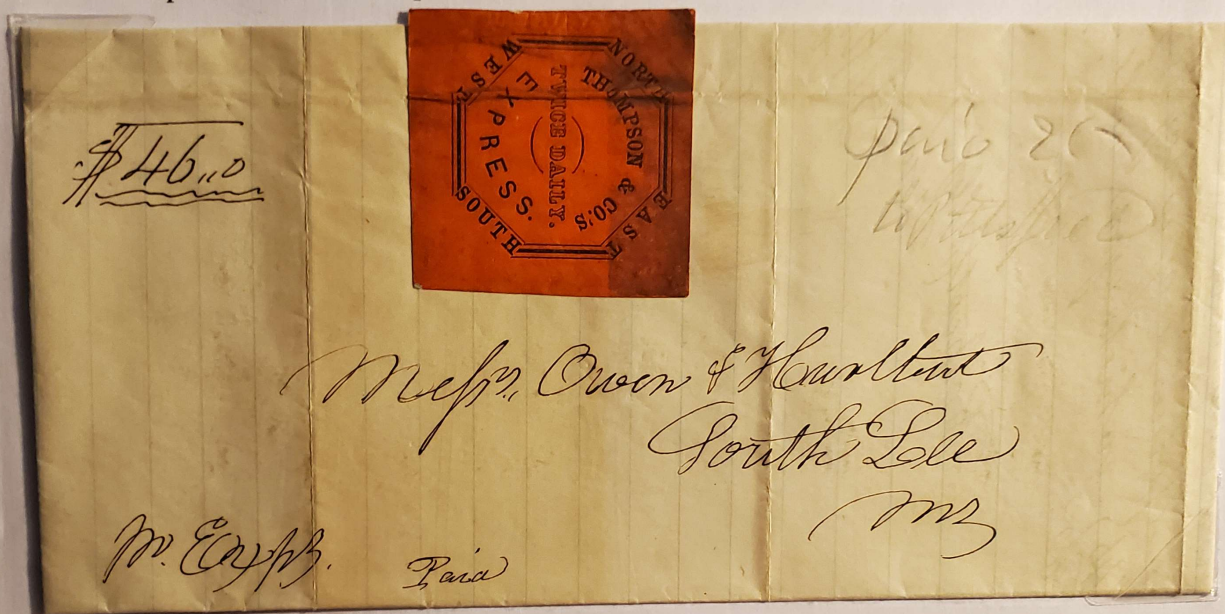 $46,,0
NORTH
EAST
SOUTH
WEST
THOMPSON & CO.'S
TWICE DAILY.
EXPRESS.
paid 2
to Pittsfield
Messrs. Owen & Hurlbut
South Lee
Ms
Paid